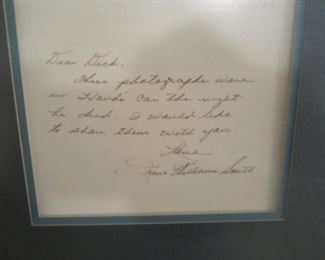 Dear Dick,
These photographs were
in Hank's car the night
he died. I would like
to share them with you.
Love
Irene Williams Smith